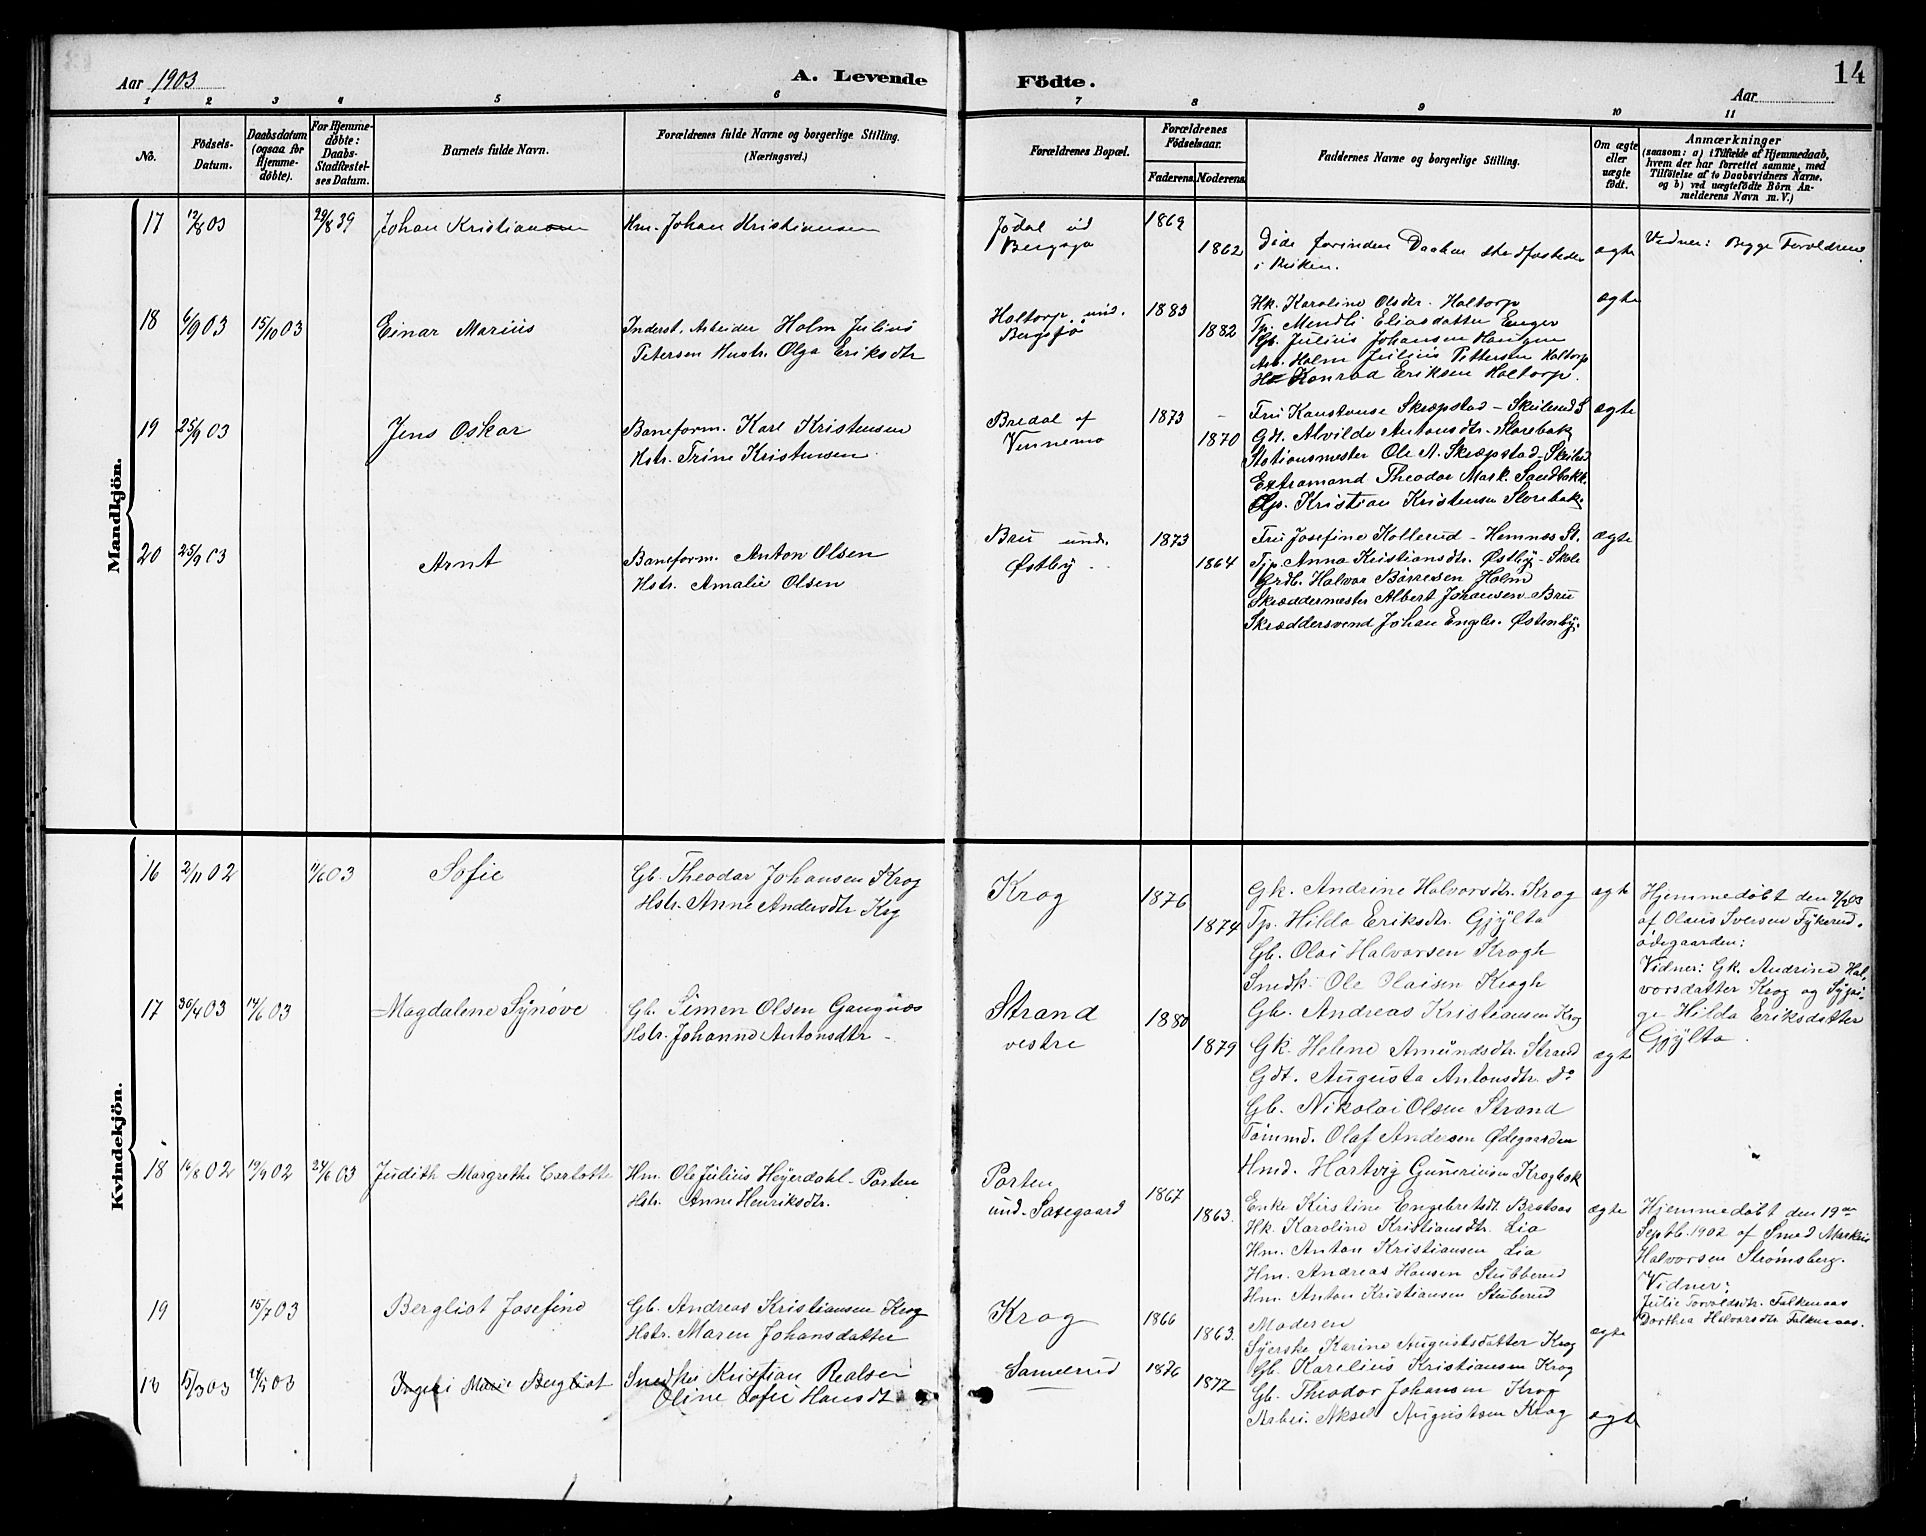 Aar 1903
A. Levende Födte.
14
Aar
1 2 3 4 5 6 7 8 9 10 11
No.
Födsels-Datum.
Daabsdatum (ogsaa for Hjemmedöbte).
For Hjemmedöbte: Daabs-Stadfæstelses Datum.
Barnets fulde Navn.
Forældrenes fulde Navne og borgerlige Stilling. (Næringsvei.)
Forældrenes Bopæl.
Forældrenes Födselsaar.
Faderens Moderens
Faddernes Navne og borgerlige Stilling.
Om ægte eller uægte födt.
Anmærkninger
(saasom: a) i Tilfælde af Hjemmedaab, hvem der har forrettet samme, med Tilföielse af to Daabsvidners Navne, og b) ved uægtefödte Börn Anmelderens Navn m. V.)
Mandkjön.
17 12/8 03 29/8 39 Johan Kristiansen
Hm. Johan Kristiansen
Jödal ud
Bergsjø
1869
1862
Døde forinden Daaben stadfæstedes
i Kirken.
ægte
Vidner: Begge Forældrene.
18 6/9 03 15/10 03 Einar Marius
Inderst, Arbeider Holm Julius
Petersen Hustr. Olga Eriksdtr
Holtorp und.
Bergsjø
1883
1882
Hk. Karoline Olsdtr. Holtorp
Tp. Mendli Eliasdatter Enger
Gb. Julius Johansen Haugen
Arb. Holm Julius Pettersen Holtorp
Konrad Eriksen Holtorp.
ægte
19 25/9 03 Jens Oskar
Baneform. Karl Kristensen
Hstr. Trine Kristensen
Bredal af
Vennemo
1873
1870
Fru Konstanse Skræpstad - Skulerud S
Gdt. Alvilde Antonsdtr. Slorebak
Stationsmester Ole A. Skræpstad - Skulerud
Extramand Theodor Mark. Sandbakk.
Kristian Kristensen Slorebak
ægte
20 25/9 03 Arnt
Baneform. Anton Olsen
Hstr. Amalie Olsen
Bru und.
Østby
1873
1864
Fru Josefine Kollerud - Hemnes St.
Tjp. Anna Kristiansdtr. Østby - Skole
Grdb. Halvor Børresen Holm
Skræddermester Albert Johansen - Bru
Skræddersvend Johan Engebr. Østenby.
ægte
Kvindekjön.
16 2/11 02 11/6 03 Sofie
Gb. Theodor Johansen Krog
Hstr. Anne Andersdtr Krg
Krog
1876
1874
Gk. Andrine Halvorsdtr. Krog
Tp. Hilda Eriksdtr. Gjylta
Gb. Olai Halvorsen Krogh
Snedk. Ole Olaisen Krogh
Gb. Andreas Kristiansen Krog
ægte
Hjemmedøbt den
af Olaus Iversen Tykerud
ødegaarden:
Vidner: Gk. Andrine Hal-
vorsdatter Krog og Sypi-
ge Hilda Eriksdatter
Gjylta.
17 30/4 03 14/6 03 Magdalene Synøve
Gb. Simen Olsen Gangnæs
Hstr. Johanne Antonsdtr -
Strand
vestre
1880
1879
Gk. Helene Amundsdtr. Strand
Gdt. Augusta Antonsdtr. Do
Gb. Nikolai Olsen Strand
Tømmd. Olaf Andersen Ødegaarden
Hmd. Hartvig Guneriusen Krogbak
ægte
18 16/8 02 19/9 02 24/6 03 Judith Margrethe Carlotte
Hm. Ole Julius Høyerdahl - Porten
Hstr. Anne Henriksdtr.
Porten
und. Saxegaard
1867
1863.
Enke Kirstine Engebretsdt. Bratsas
Hk. Karoline Kristiansdtr. Lia
Hm. Anton Kristiansen Lia
Hm. Andreas Hansen Stubberud
Hm. Anton Kristiansen Stuberud
ægte
Hjemmedøbt den 19de
Septb. 1902 af Smed Markus
Halvorsen Strømsberg.
Vidner:
Julie Torvoldsdtr. Falkenaas
Dorthea Halvorsdtr. Falkenaas.
19 15/7 03 Bergliot Josefine
Gb. Andreas Kristiansen Krog
Hstr. Maren Johansdatter
Krog
1866
1863.
Moderen
Syerske Karine Augustsdatter Krog
Gb. Karelius Kristiansen Krog
Gb. Theodor Johansen Krog
Arbei. Aksel Augustsen Krog
ægte
5/3 03 Marie Bergliot
Snedker Kristian Realsen
Oline Sofie Hansdt
Samerud
1876
1877
ægte